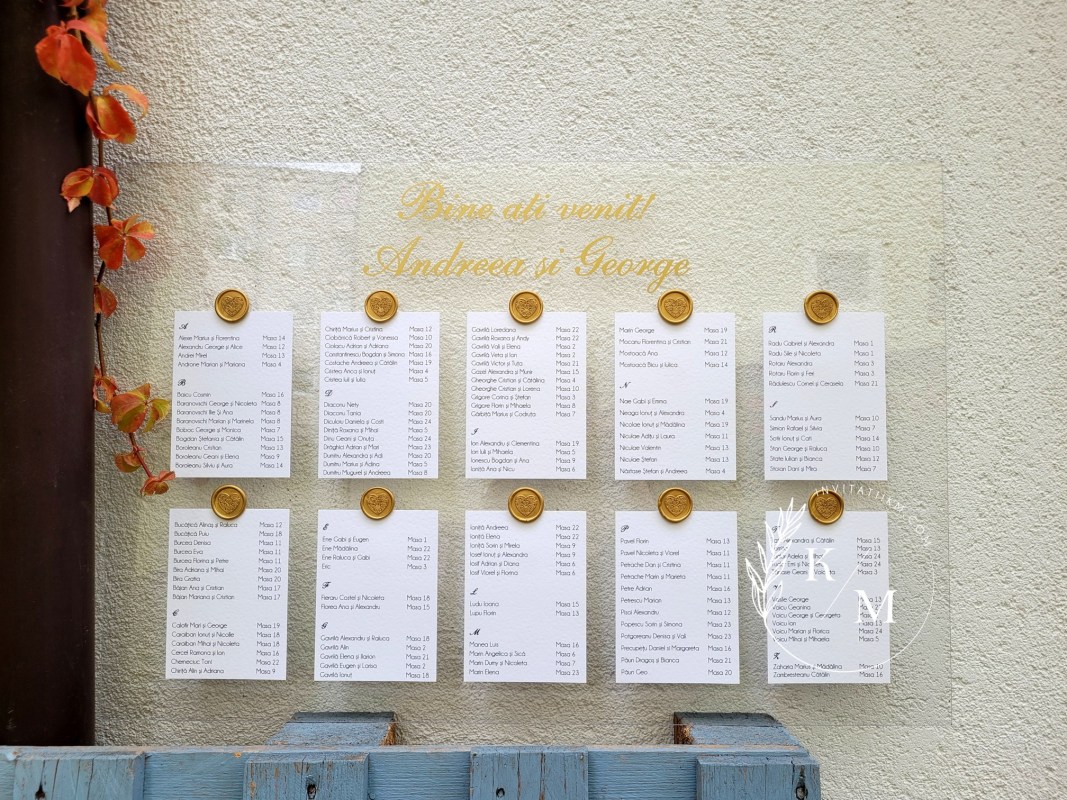 Bine ati venit!
Andreea si George
A
Alexe Marius și Florentina Masa 24
Alexandru George și Alice Masa 12
Andrei Mirel Masa 13
Andrione Marian și Mariana Masa 4
B
Baicu Cosmin Masa 16
Baranovschi George și Nicoleta Masa 8
Baranovschi Ilie Și Ana Masa 8
Baranovschi Marian și Marinela Masa 8
Boboc George și Monica Masa 7
Bogdan Ștefania și Cătălin Masa 15
Boroleanu Cristian Masa 13
Boroleanu Geani și Elena Masa 9
Boroleanu Silviu și Aura Masa 14
Chiriță Marius și Cristina Masa 12
Ciobănică Robert și Vanessa Masa 10
Ciolacu Adrian și Adriana Masa 20
Constantinescu Bogdan și Simona Masa 16
Costache Andreea și Cătălin Masa 19
Cristea Anca și Ionut Masa 4
Cristea Iuli și Iulia Masa 5
D
Draconu Nety Masa 20
Draconu Tania Masa 20
Diculoiu Daniela și Costi Masa 24
Diniță Roxana și Mihai Masa 5
Dinu Geani și Onuța Masa 24
Drăghia Adrian și Mari Masa 23
Dumitru Alexandra și Adi Masa 20
Dumitru Marius și Adina Masa 5
Dumitru Mugurel și Andreea Masa 8
Gavrilă Loredana Masa 22
Gavrilă Roxana și Andy Masa 22
Gavrilă Vali și Elena Masa 2
Gavrilă Veta și Ion Masa 2
Gavrilă Victor și Tuța Masa 21
Gazel Alexandra și Mure Masa 15
Gheorghe Cristian și Cătălina Masa 4
Gheorghe Cristian și Lorena Masa 10
Grigore Corina și Ștefan Masa 3
Grigore Florin și Mihaela Masa 8
Gărbiță Marius și Codruța Masa 7
I
Ion Alexandru și Clementina Masa 19
Ion Iuli și Mihaela Masa 5
Ionescu Bogdan și Ana Masa 9
Ioniță Ana și Nicu Masa 6
Marin George Masa 19
Mocanu Florentina și Cristian Masa 21
Mostoacă Ana Masa 12
Mostoacă Bicu și Iulica Masa 14
N
Nae Gabi și Emma Masa 19
Neaga Ionuț și Alexandra Masa 4
Nicolae Ionuț și Mădălina Masa 19
Nicolae Adițu și Laura Masa 11
Nicolae Valentin Masa 13
Nicolae Ștefan Masa 13
Năstase Ștefan și Andreea Masa 4
R
Radu Gabriel și Alexandra Masa 1
Radu Sile și Nicoleta Masa 1
Rotaru Alexandra Masa 3
Rotaru Florin și Feri Masa 3
Rădulescu Cornel și Cerasela Masa 21
S
Sandu Marius și Aura Masa 10
Simon Rafael și Silvia Masa 7
Sotir Ionut și Cati Masa 14
Stan George și Raluca Masa 10
State Iulian și Bianca Masa 12
Stoian Dani și Mira Masa 7
Bucățică Alinaș și Raluca Masa 12
Bucățică Puiu Masa 18
Burcea Denisa Masa 11
Burcea Eva Masa 11
Burcea Florina și Petre Masa 11
Bîra Adriana și Mihail Masa 20
Bîra Gratia Masa 20
Băjan Ana și Cristian Masa 17
Băjan Mariana și Cristian Masa 17
C
Calotă Mari și George Masa 19
Caraiban Ionut și Nicolle Masa 18
Caraiban Mihai și Nicoleta Masa 18
Cercel Ramona și Ion Masa 16
Chemeciuc Toni Masa 22
Chiriță Alin și Adriana Masa 9
E
Ene Gabi și Eugen Masa 1
Ene Mădălina Masa 22
Ene Raluca și Gabi Masa 22
Eric Masa 3
F
Fieraru Costel și Nicoleta Masa 18
Florea Ana și Alexandru Masa 15
G
Gavrilă Alexandru și Raluca Masa 18
Gavrilă Alin Masa 2
Gavrilă Elena și Ilarian Masa 21
Gavrilă Eugen și Larisa Masa 2
Gavrilă Ionuț Masa 18
Ioniță Andreea Masa 22
Ioniță Elena Masa 22
Ioniță Sorin și Mirela Masa 9
Iosef Ionuț și Alexandra Masa 9
Iosif Adrian și Diana Masa 6
Iosif Viorel și Florina Masa 6
L
Ludu Ioana Masa 15
Lupu Florin Masa 13
M
Manera Luis Masa 16
Marin Angelica și Jică Masa 6
Marin Dumy și Nicoleta Masa 7
Marin Elena Masa 23
P
Pavel Florin Masa 13
Pavel Nicoleta și Viorel Masa 11
Petrache Dan și Cristina Masa 11
Petrache Marin și Marieta Masa 11
Petre Adrian Masa 16
Petrescu Marian Masa 13
Pisoi Alexandru Masa 12
Popescu Sorin și Simona Masa 23
Potgoreanu Denisa și Vali Masa 23
Precupețu Daniel și Margareta Masa 16
Păun Dragoș și Bianca Masa 21
Păun Geo Masa 20
Cătălin Masa 15
Masa 13
Adela și Masa 24
Masa 24
Masa 3
V
Vasile George Masa 13
Voicu Geanina
Voicu George și Georgeta
Voicu Ion Masa 13
Voicu Marian și Florica Masa 24
Voicu Mihai și Mihaela Masa 5
Z
Zaharia Marius și Mădălina Masa 10
Zambresteanu Cătălin Masa 16
K
M